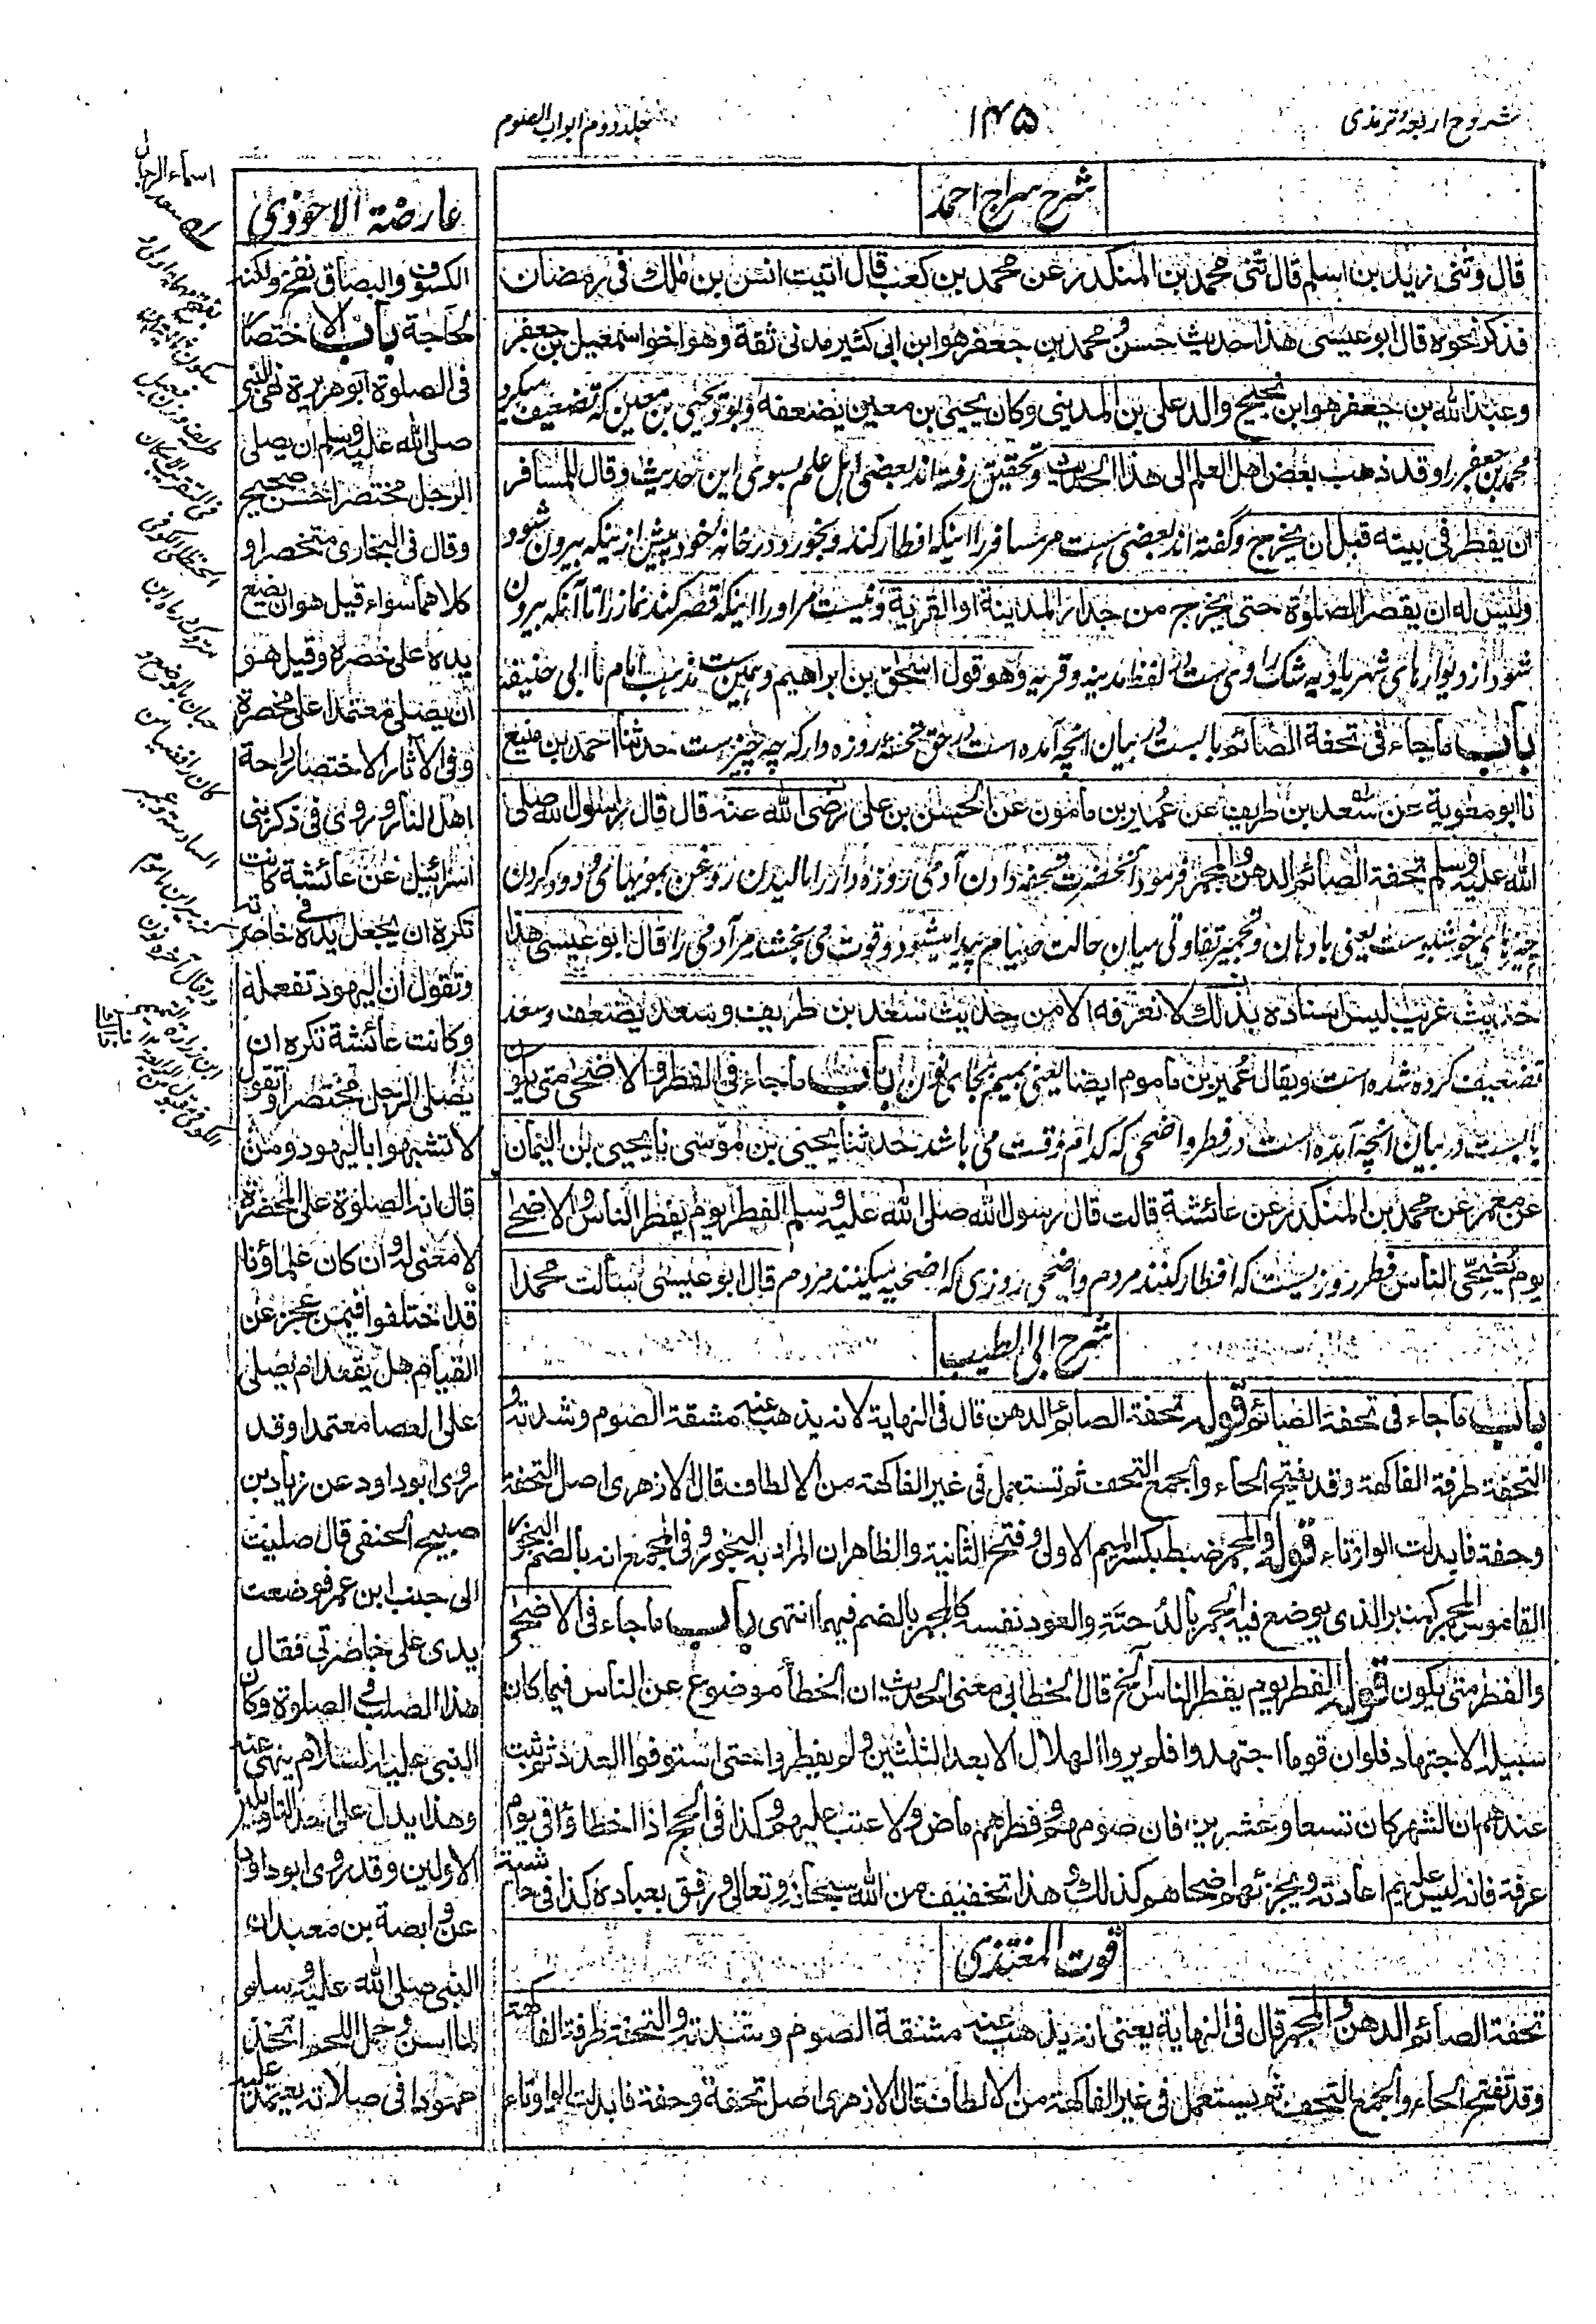 شروح اربعۂ ترمذی
۱۴۵
جلد دوم من ابواب الصوم
شرح سراج احمد
قال وثنی زید بن اسلم قال ثنی محمد بن المنکدر عن محمد بن کعب قال اتیت انس بن ملك فی رمضان
فذکر نحوه قال ابو عیسی هذا حدیث حسن و محمد بن جعفر هو ابن ابی کثیر مدنی ثقة وهو اخو اسمعیل بن جعفر
وعبد الله بن جعفر هو ابن نجیح والد علی بن المدینی وکان یحیی بن معین یضعفه وبود یحیی بن معین که تضعیف میکرد
محمد بن جعفر را وقد ذهب بعض اهل العلم الی هذا الحدیث وتحقیق رفته اند بعضی اہل علم بسوی این حدیث وقال للمسافر
ان یفطر فی بیته قبل ان یخرج وگفته اند بعضی ہست مر مسافر را اینکه افطار کند و بخورد در خانۂ خود پیش ازینکه بیرون شود
ولیس له ان یقصر الصلوة حتی یخرج من جدار المدینة او القریة ونیست مر او را اینکه قصر کند نماز را تا آنکه بیرون
شود از دیوارہای شہر یا دیه شك راوی ست در لفظ مدینه و قریه وهو قول اسحق بن ابراهیم وہمین ست مذہب امام ما ابی حنیفہ
باب ما جاء فی تحفة الصائم بابست در بیان انچه آمده است در حق تحفۂ روزه دار که چه چیز ست حدثنا احمد بن منیع
نا ابو معویة عن سعد بن طریف عن عمیر بن مامون عن الحسن بن علی رضی الله عنه قال قال رسول الله صلی
الله علیه وسلم تحفة الصائم الدهن والمجمر فرمود آنحضرت تحفه دادن آدمی روزه دار را مالیدن روغن بمویہای و دود کردن
چیزہای خوشبو ست یعنی بادہان و تجمیر تفاوتی میان حالت صیام پیدا میشود و قوت می بخشد مر آدمی را قال ابو عیسی هذا
حدیث غریب لیس اسناده بذلك لا نعرفه الا من حدیث سعد بن طریف وسعد یضعف وسعد
تضعیف کرده شده است ویقال عمیر بن ماموم ایضا یعنی بمیم بجای نون باب ما جاء فی الفطر والاضحی متی یکون
بابست در بیان انچه آمده است در فطر و اضحی که کدام وقت می باشد حدثنا یحیی بن موسی نا یحیی بن الیمان
عن معمر عن محمد بن المنکدر عن عائشة قالت قال رسول الله صلی الله علیه وسلم الفطر یوم یفطر الناس والاضحی
یوم یضحی الناس فطر روزیست که افطار کنند مردم و اضحی روزی که اضحیه میکنند مردم قال ابو عیسی سألت محمدا
شرح ابی الطیب
باب ما جاء فی تحفة الصائم قوله تحفة الصائم الدهن قال فی النهایة لانه یذهب عنه مشقة الصوم وشدته و
التحفة طرفة الفاکهة وقد یفتح الحاء والجمع التحف ثم تستعمل فی غیر الفاکهة من الالطاف قال الازهری اصل التحفة
وحفة فابدلت الواو تاء قوله والمجمر ضبط بکسر المیم الاولی وفتح الثانیة والظاهر ان المراد به البخور وفی المجمع انه بالضم البخور
القاموس المجمر کمنبر الذی یوضع فیه الجمر بالدخنة والعود نفسه کالمجمر بالضم فیهما انتهی باب ما جاء فی الاضحی
والفطر متی یکون قوله الفطر یوم یفطر الناس الخ قال الخطابی معنی الحدیث ان الخطأ موضوع عن الناس فیما کان
سبیله الاجتهاد فلو ان قوما اجتهدوا فلم یروا الهلال الا بعد الثلثین ولم یفطروا حتی استوفوا العدد ثم ثبت
عندهم ان الشهر کان تسعا وعشرین فان صومهم وفطرهم ماض ولا عتب علیهم وکذا فی الحج اذا اخطاؤا فی یوم
عرفة فانه لیس علیهم اعادته ویجزئهم اضحاهم کذلك وهذا تخفیف من الله سبحانه وتعالی ورفق بعباده کذا فی حاشیة
قوت المغتذی
تحفة الصائم الدهن والمجمر قال فی النهایة یعنی انه یذهب عنه مشقة الصوم وشدته والتحفة طرفة الفاکهة
وقد تفتح الحاء والجمع التحف ثم یستعمل فی غیر الفاکهة من الالطاف قال الازهری اصل تحفة وحفة فابدلت الواو تاء
عارضة الاحوذی
الکسوف والبصاق نفخ ولکنه
لحاجة باب الاختصار
فی الصلوة ابو هریرة نهی النبی
صلی الله علیه وسلم ان یصلی
الرجل مختصرا حسن صحیح
وقال فی البخاری متخصرا و
کلاهما سواء قیل هو ان یضع
یده علی خصره وقیل هو
أن یصلی معتمدا علی مخصرة
وفی الآثار الاختصار راحة
اهل النار وروی فی ذکر بنی
اسرائیل عن عائشة کانت
تکره ان یجعل یده فی خاصرته
وتقول ان الیهود تفعله
وکانت عائشة تکره ان
یصلی الرجل مختصرا وتقول
لا تشبهوا بالیهود ومن
قال انه الصلوة علی المخصرة
لا معنی له وان کان علماؤنا
قد اختلفوا فیمن عجز عن
القیام هل یقعد ام یصلی
علی العصا معتمدا وقد
روی ابو داود عن زیاد بن
صبیح الحنفی قال صلیت
الی جنب ابن عمر فوضعت
یدی علی خاصرتی فقال
هذا الصلب فی الصلوة وکان
النبی علیه السلام ینهی عنه
وهذا یدل علی احد التاویلین
الاولین وقد روی ابو داود
عن وابصة بن معبد ان
النبی صلی الله علیه وسلم
لما اسن وحمل اللحم اتخذ
عمودا فی صلاته یعتمد علیه
اسماء الرجال